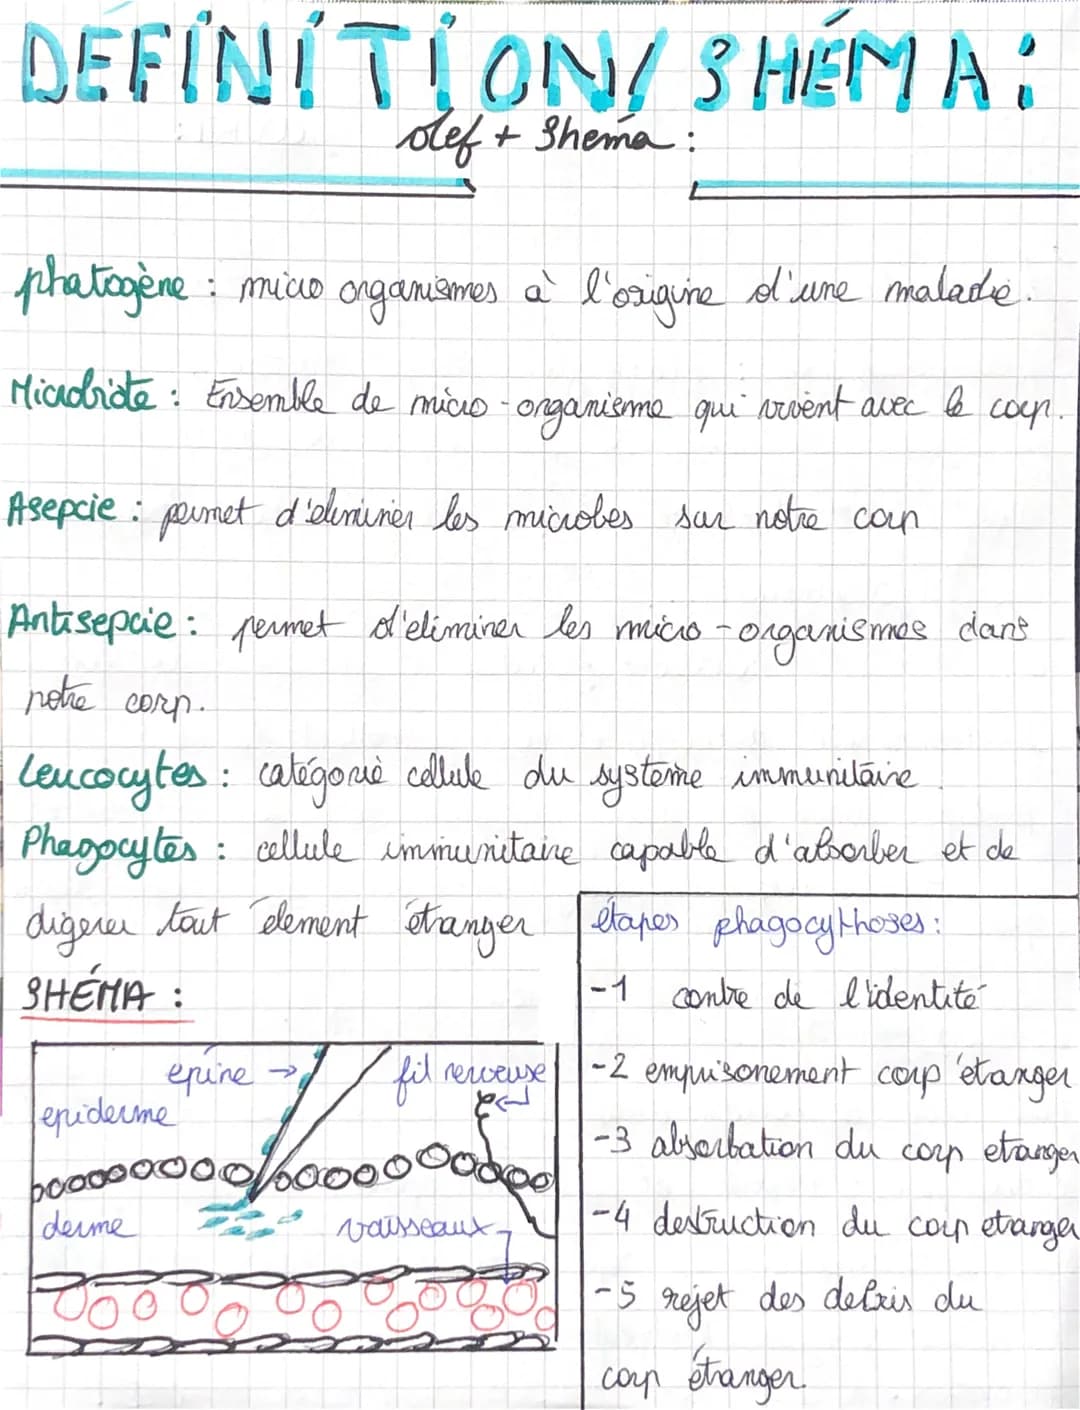 DÉFINITION/SHÉMA:
def + Shema :
phatogène : micro organismes à l'origine d'une maladie.
Microbiote : Ensemble de micro-organisme qui vivent avec le corp.
Asepcie : permet d'eliminer les microbes sur notre corp
Antisepcie : permet d'eliminer les micro-organismes dans
notre corp.
Leucocytes : catégorie cellule du système immunitaire.
Phagocytes : cellule immunitaire capable d'absorber et de
digerer tout élement étranger
étapes phagocythoses :
SHÉMA :
-1 contre de l'identité
epine
fil nerveuse
-2 empuisonement corp étranger
epiderme
-3 absorbation du corp etranger
derme
vaisseaux
-4 destruction du corp etranger
-5 rejet des debris du
corp étranger.